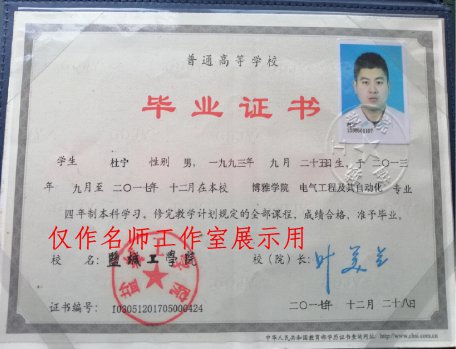 普通高等学校
毕业证书
学生 杜宁 性别 男，一九九三年 九月 二十五日生，于二〇一三
年 九月至二〇一七年 十二月在本校 博雅学院 电气工程及其自动化 专业
四年制本科学习，修完教学计划规定的全部课程，成绩合格，准予毕业。
仅作名师工作室展示用
校 名：盐城工学院 校（院）长：
证书编号： 103051201705000424 二〇一七年 十二月 二十八日
中华人民共和国教育部学历证书查询网址：http://www.chsi.com.cn